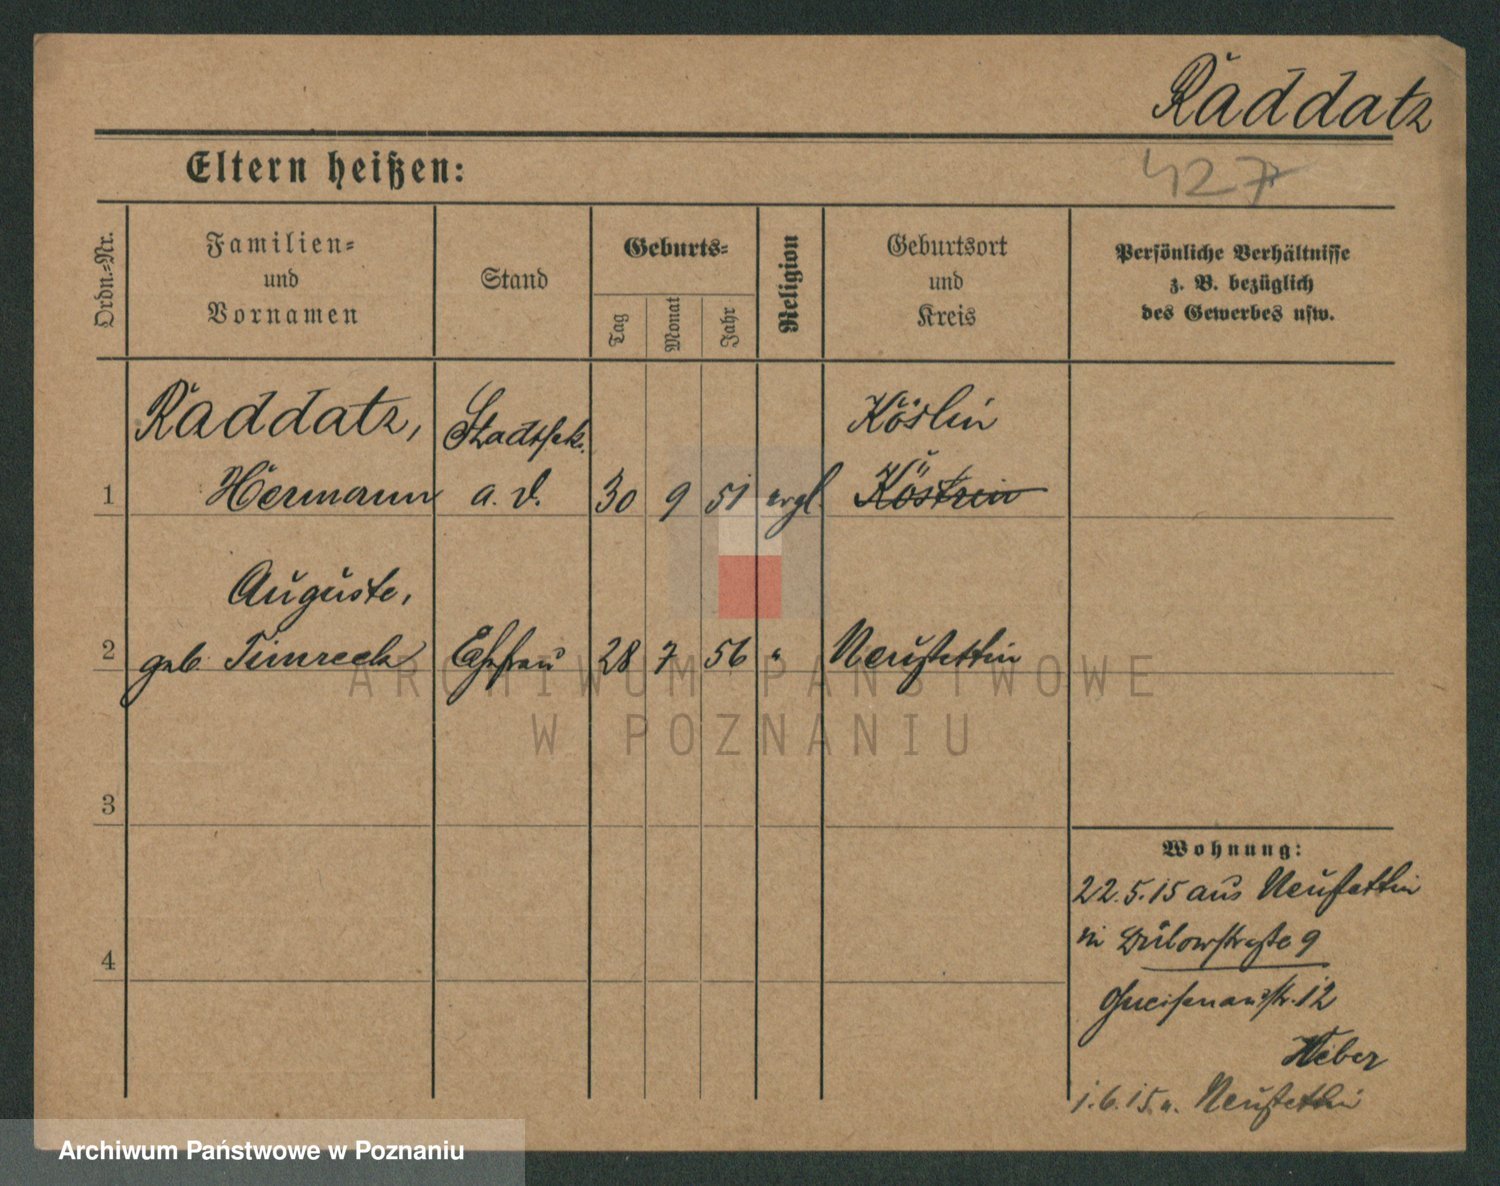 Raddatz
427
Eltern heißen:
Ordn.=Nr.
Familien=
und
Vornamen
Stand
Geburts=
Tag
Monat
Jahr
Religion
Geburtsort
und
Kreis
Persönliche Verhältnisse
z. B. bezüglich
des Gewerbes usw.
Raddatz, Stadtsek. Köslin
1 Hermann a. D. 30 9 51 evgl. Köstrin
Auguste,
2 geb. Timreck Ehefrau 28 7 56 " Neustettin
3
4
Wohnung:
22.5.15 aus Neustettin
in Bülowstraße 9
Gneisenaustr. 12
Weber
1.6.15 n. Neustettin
ARCHIWUM PAŃSTWOWE
W POZNANIU
Archiwum Państwowe w Poznaniu